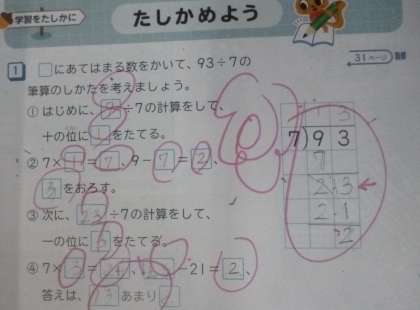 学習をたしかに
たしかめよう
31ページ
1 □にあてはまる数をかいて、93÷7の
筆算のしかたを考えましょう。
① はじめに、9÷7の計算をして、
十の位に1をたてる。
② 7×1=7、9-7=2、
3をおろす。
③ 次に、23÷7の計算をして、
一の位に3をたてる。
④ 7×3=21、23-21=2、
答えは、13あまり2
1 3
7)9 3
7
2 3
2 1
2